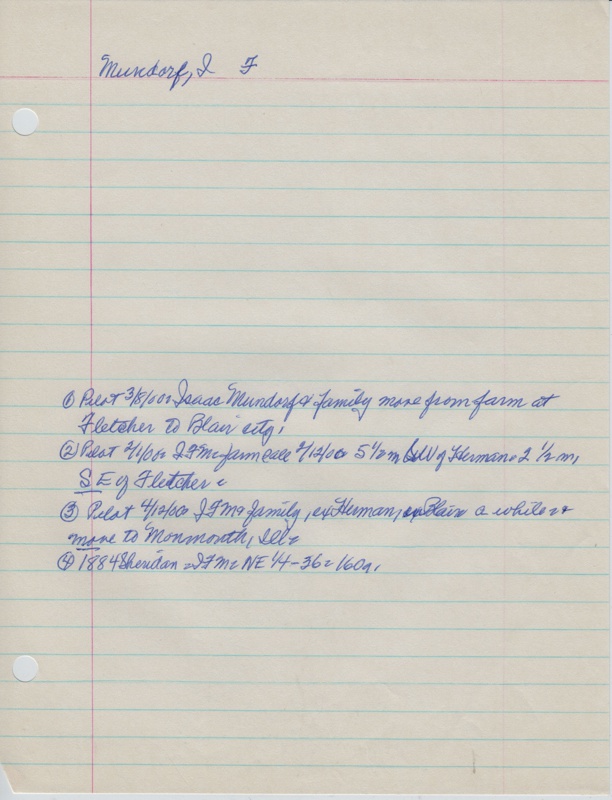 Mundorf, I F
① Pilot 3/8/00= Isaac Mundorf & family move from farm at
Fletcher to Blair city.
② Pilot 2/1/00= I F M= farm sale 2/12/00= 5 1/2 m SW of Herman= 2 1/2 m,
SE of Fletcher=
③ Pilot 4/12/00 I F M & family, ex Herman, ex Blair a while= &
move to Monmouth, Ill=
④ 1884 Sheridan= I F M= NE 1/4-36= 160a.